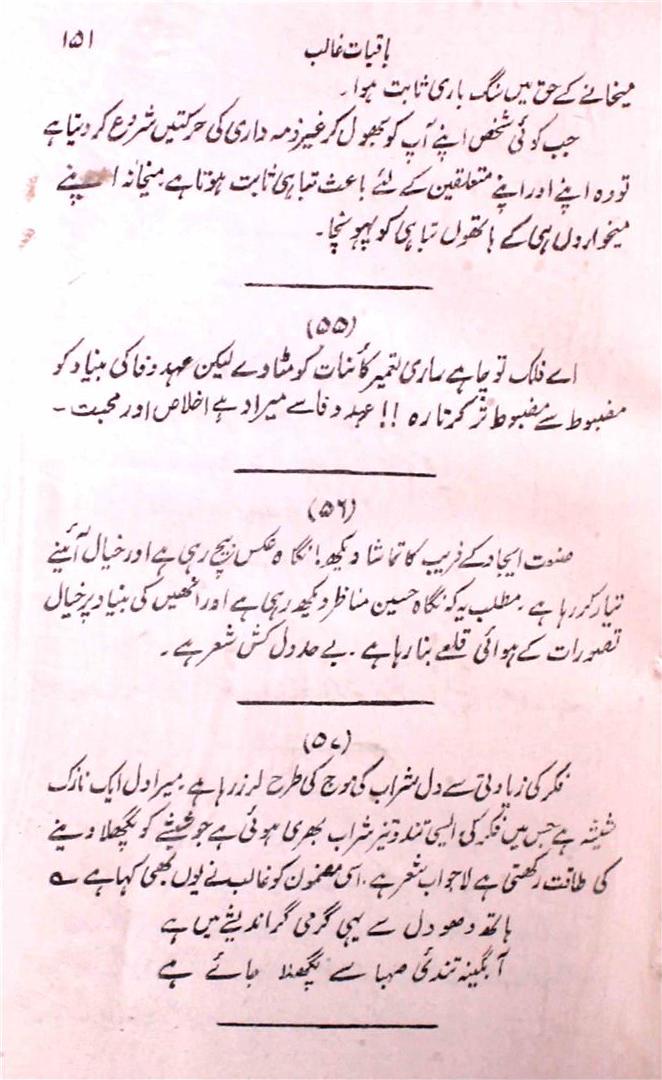 باقیات غالب
۱۵۱
میخانے کے حق میں سنگ باری ثابت ہوا۔
جب کوئی شخص اپنے آپ کو بھول کر غیر ذمہ داری کی حرکتیں شروع کر دیتا ہے
تو وہ اپنے اور اپنے متعلقین کے لئے باعث تباہی ثابت ہوتا ہے۔ میخانہ اپنے
میخواروں ہی کے ہاتھوں تباہی کو پہونچا۔
(۵۵)
اے فلک تو چاہے ساری تعمیر کائنات کو مٹا دے لیکن عہد وفا کی بنیاد کو
مضبوط سے مضبوط تر کرتا رہ !! عہد وفا سے مراد ہے اخلاص اور محبت ۔
(۵۶)
صنعت ایجاد کے فریب کا تماشا دیکھ ! نگاہ عکس بیچ رہی ہے اور خیال آئینے
تیار کر رہا ہے ۔ مطلب یہ کہ نگاہ حسین مناظر دیکھ رہی ہے اور انھیں کی بنیاد پر خیال
تصورات کے ہوائی قلعے بنا رہا ہے ۔ بے حد دل کش شعر ہے ۔
(۵۷)
فکر کی زیادتی سے دل شراب کی موج کی طرح لرز رہا ہے ۔ میرا دل ایک نازک
شیشہ ہے جس میں فکر کی ایسی تند و تیز شراب بھری ہوئی ہے جو شیشے کو پگھلا دینے
کی طاقت رکھتی ہے لاجواب شعر ہے ۔ اسی مضمون کو غالب نے یوں بھی کہا ہے ؎
ہاتھ دھو دل سے یہی گرمی گر اندیشے میں ہے
آبگینہ تندئ صہبا سے پگھلا جائے ہے